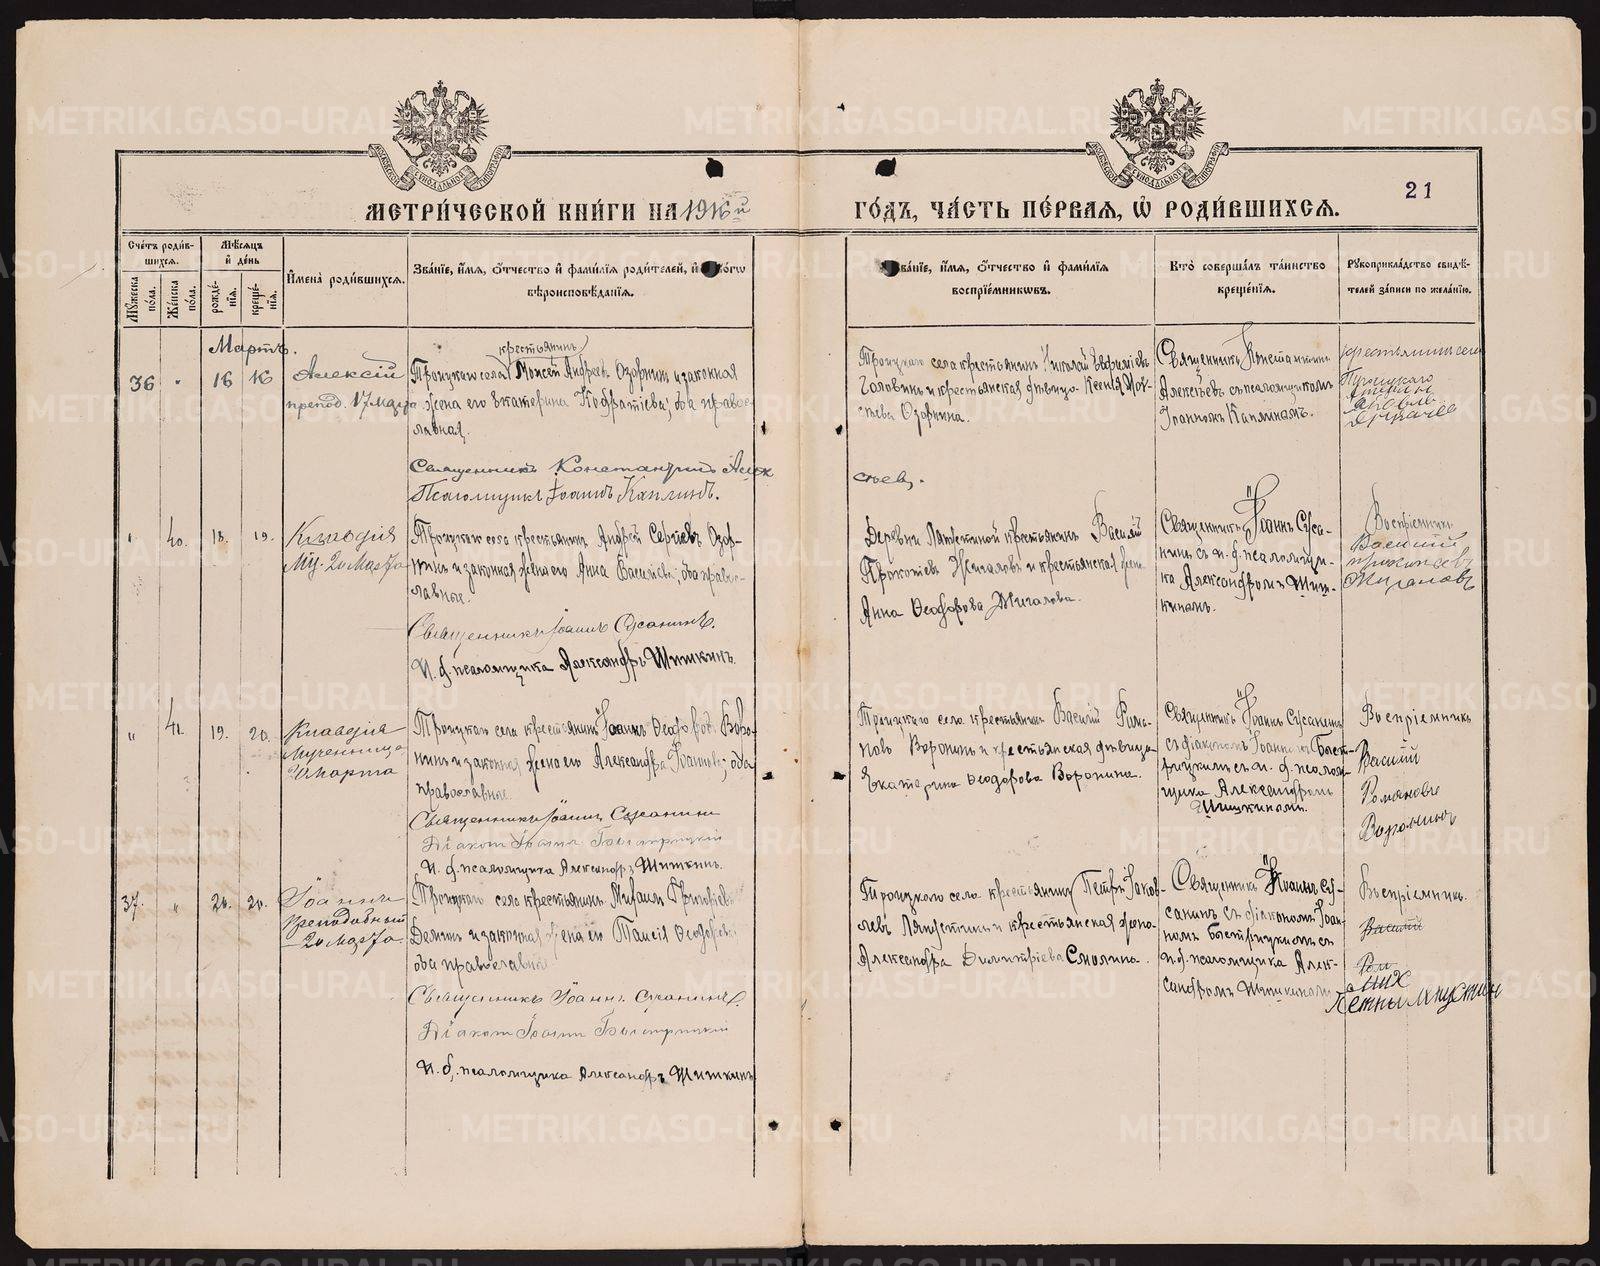 МЕТРИ́ЧЕСКОЙ КНИ́ГИ НА 1916й
ГО́ДЪ, ЧА́СТЬ ПЕ́РВАЯ, Ѡ҆ РОДИ́ВШИХСЯ.
21
Сче́тъ роди́в-
шихся.
Мѣ́сяцъ
и҆ де́нь
Мꙋ́жеска
по́ла.
Же́нска
по́ла.
рожде́-
нїя.
креще́-
нїя.
И҆мена̀ роди́вшихся.
Зва́нїе, и҆́мя, ѻ҆́тчество и҆ фами́лїя роди́телей, и҆
вѣроисповѣ́данїя.
Зва́нїе, и҆́мя, ѻ҆́тчество и҆ фами́лїя
воспрїе́мникѡвъ.
Кто̀ соверша́лъ та́инство
креще́нїя.
Рꙋкоприкла́дство свидѣ́-
телей за́писи по жела́нїю.
Мартъ.
36
"
16
16
Алексій
препод. 17 Марта
крестьянинъ
Троицкаго села Моисей Андреевъ Озорнинъ и законная
жена его Екатерина Кодратіева; оба право-
славная.
Священникъ Константинъ Алек
сѣевъ.
Псаломщикъ Іоаннъ Каплинъ.
Троицкаго села крестьянинъ Николай Евфиміевъ
Головинъ и крестьянская дѣвица Ксенія
Озорнина.
Священникъ Константинъ
Алексѣевъ съ псаломщикомъ
Іоанномъ Каплинымъ.
крестьянинъ села
Троицкаго
"
40.
18.
19.
Клавдія
Муч. 20 Марта
Троицкаго села крестьянинъ Андрей Сергіевъ Озор-
нинъ и законная жена его Анна Васильева; оба право-
славные.
Священникъ Іоаннъ Сусанинъ.
И. д. псаломщика Александръ Шишкинъ.
Деревни Ляпустиной крестьянинъ Василій
Прокопіевъ Жигаловъ и крестьянская жена
Анна Ѳеодорова Жигалова.
Священникъ Іоаннъ Суса-
нинъ съ и. д. псаломщи-
ка Александромъ Шиш-
кинымъ.
Воспріемникъ
Василій
Жигаловъ
"
41.
19.
20.
Клавдія
Мученица
20 марта
Троицкаго села крестьянинъ Іоаннъ Ѳеодоровъ Воро-
нинъ и законная жена его Александра Іоаннова; оба
православные.
Священникъ Іоаннъ Сусанинъ
Діаконъ Іоаннъ Быстрицкій
И. д. псаломщика Александръ Шишкинъ.
Троицкаго села крестьянинъ Василій Рома-
новъ Воронинъ и крестьянская дѣвица
Екатерина Ѳеодорова Воронина.
Священникъ Іоаннъ Сусанинъ
съ діакономъ Іоанномъ Быст-
рицкимъ съ и. д. псалом-
щика Александромъ
Шишкинымъ.
Воспріемникъ
Василій
Романовъ
Воронинъ
37.
"
20.
20.
Іоаннъ
Преподобный
20 Марта
Троицкаго села крестьянинъ Михаилъ Григоріевъ
Деминъ и законная жена его Таисія Ѳеодорова
оба православные
Священникъ Іоаннъ Сусанинъ.
Діаконъ Іоаннъ Быстрицкій
И. д. псаломщика Александръ Шишкинъ
Троицкаго села крестьянинъ Петръ Іаков-
левъ Ляпустинъ и крестьянская жена
Александра Димитріева Смолина.
Священникъ Іоаннъ Су-
санинъ съ діакономъ Іоан-
номъ Быстрицкимъ съ
и. д. псаломщика Алек-
сандромъ Шишкинымъ
Воспріемникъ.
Василій
Ром
METRIKI.GASO-URAL.RU